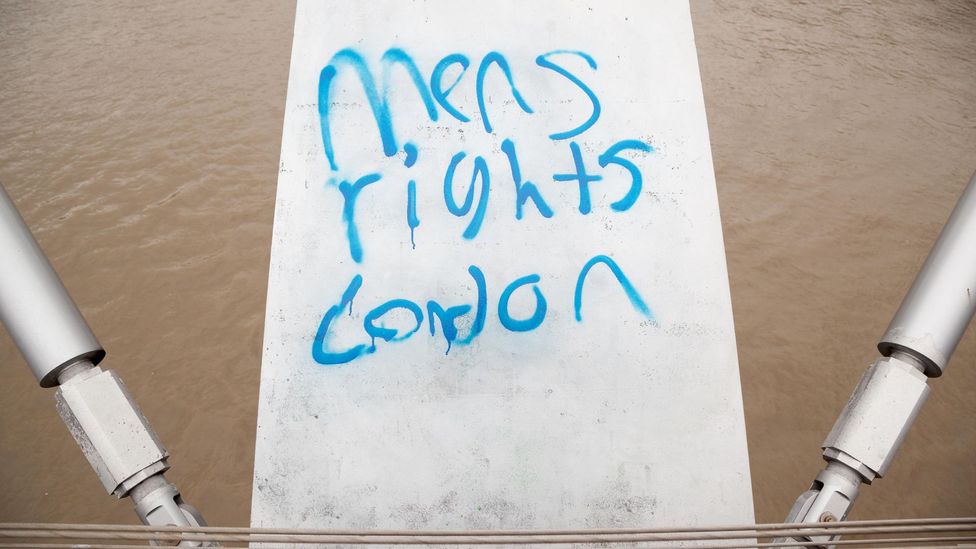 Mens
rights
London